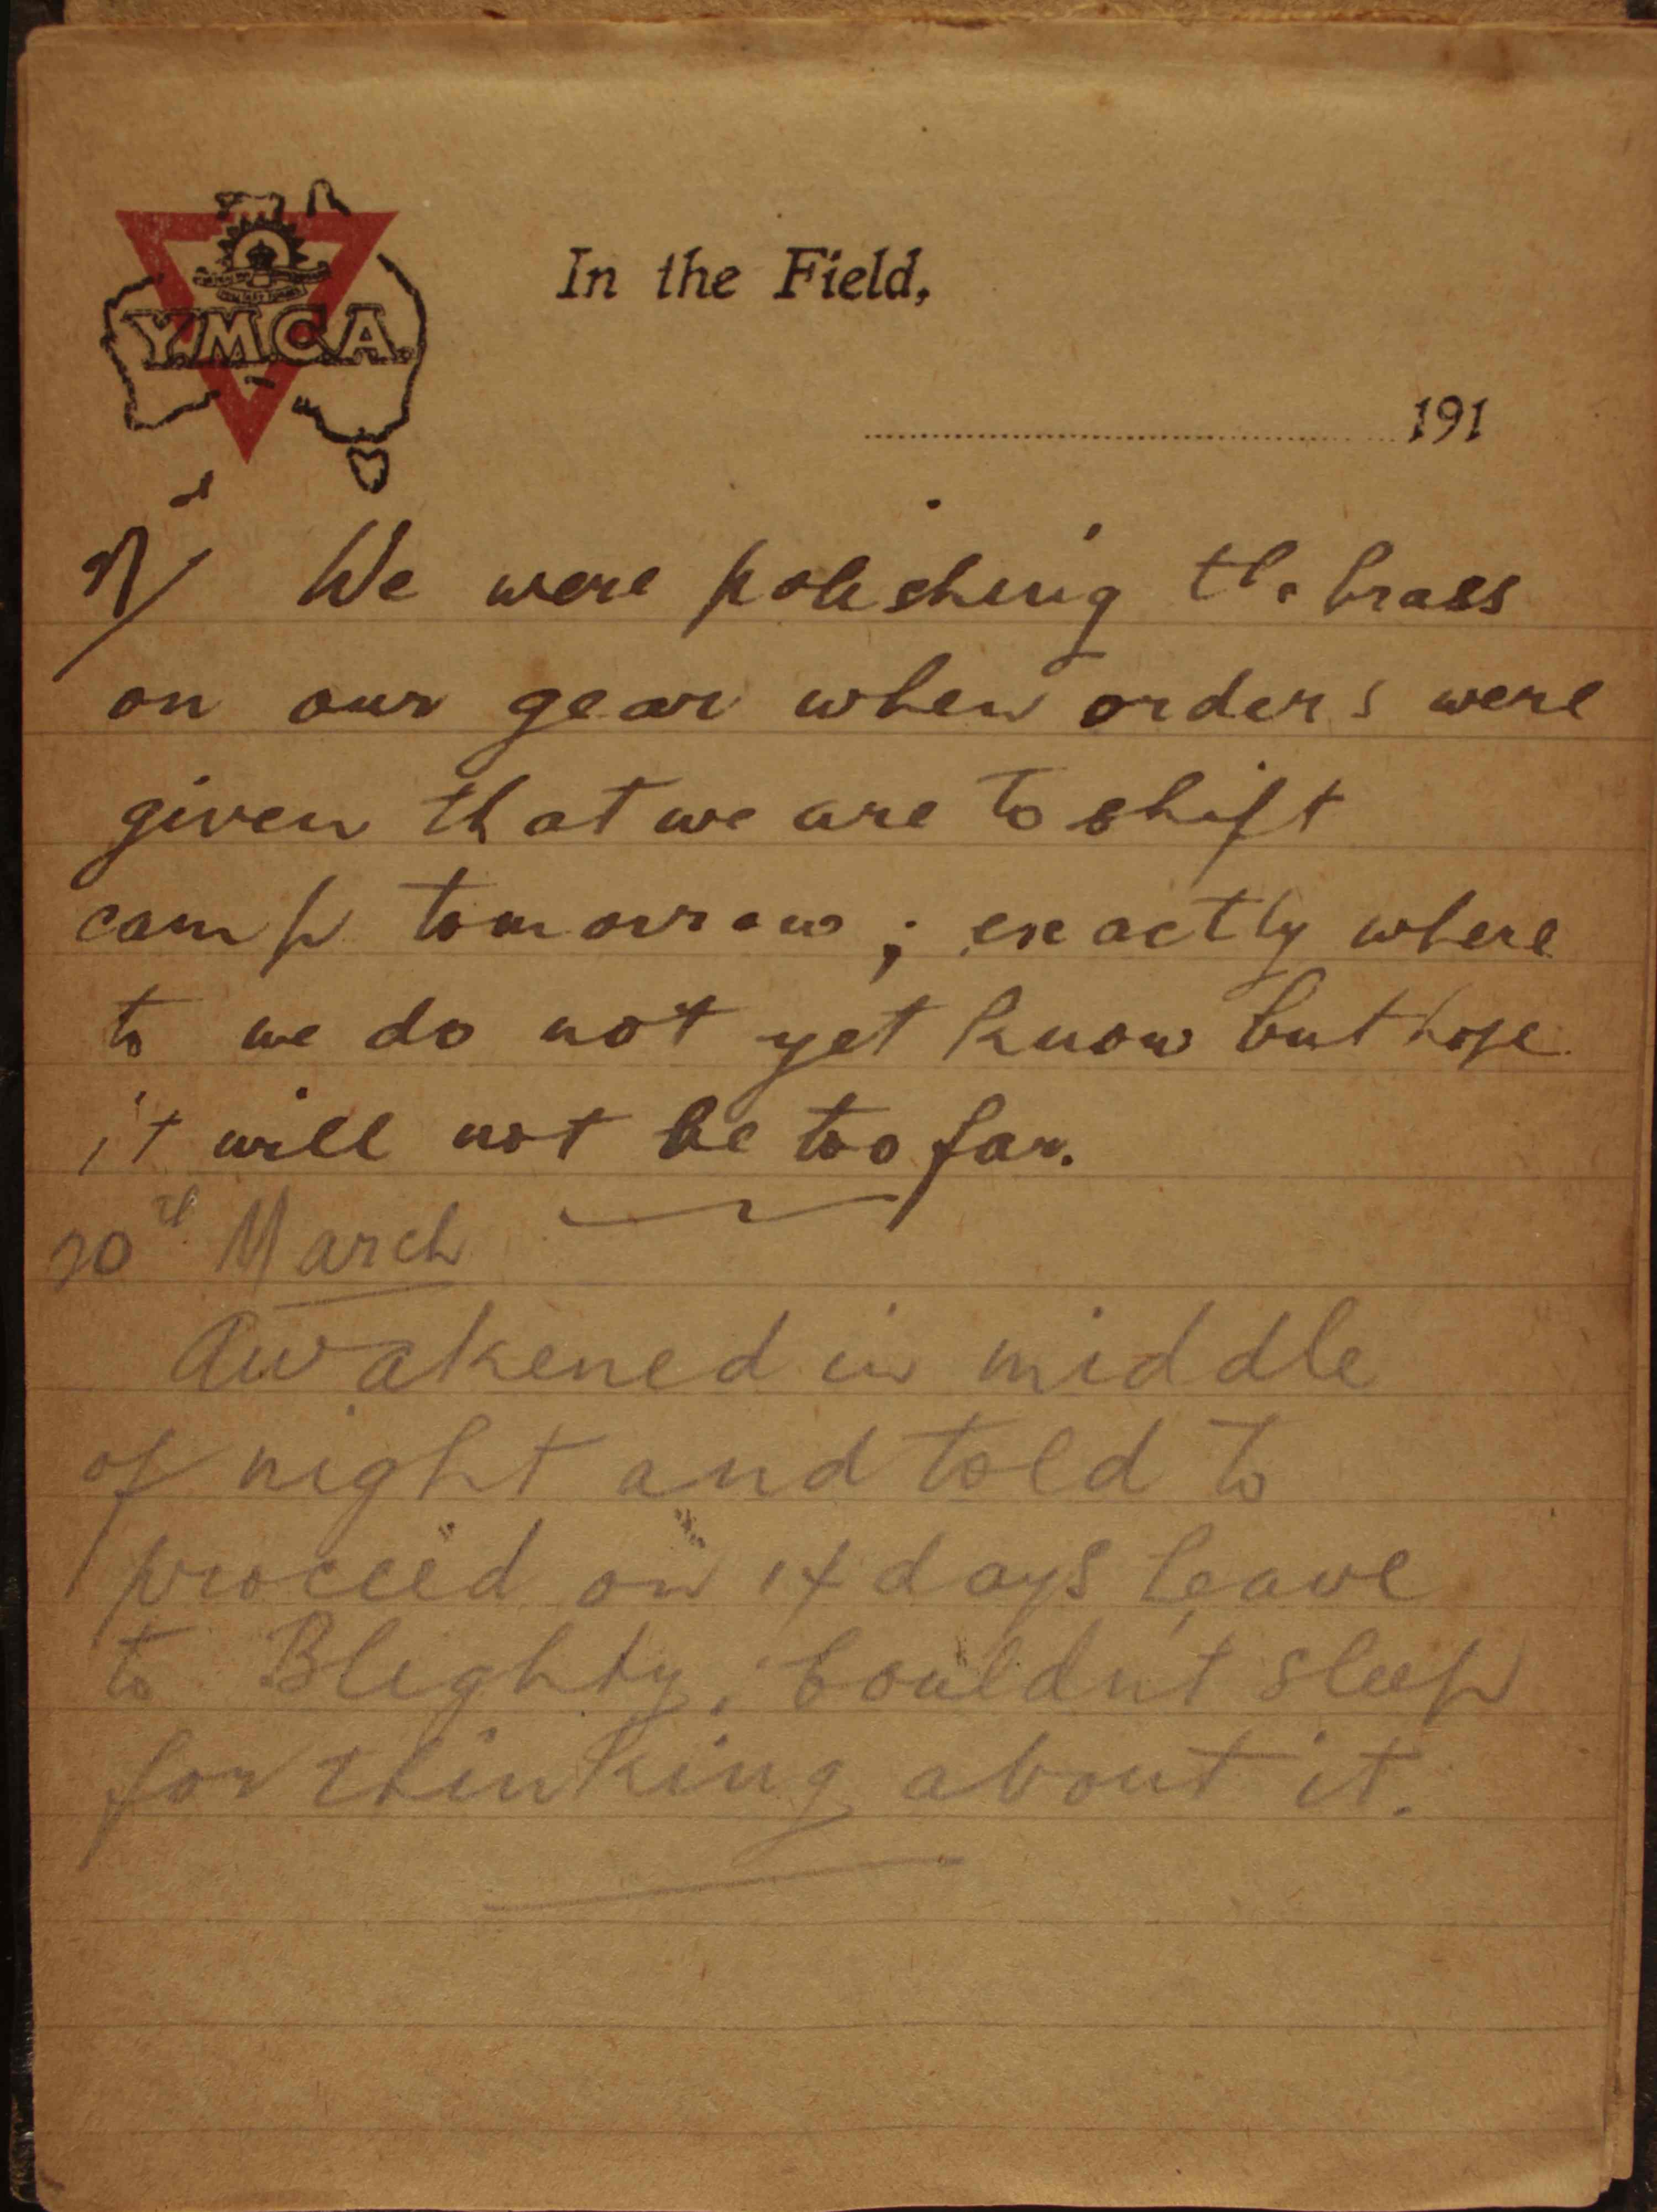 Y.M.C.A.
In the Field,
191
We were polishing the brass
on our gear when orders were
given that we are to shift
camp tomorrow; exactly where
to we do not yet know but hope
it will not be too far.
20th March
Awakened in middle
of night and told to
proceed on 14 days leave
to Blighty; Couldn't sleep
for thinking about it.